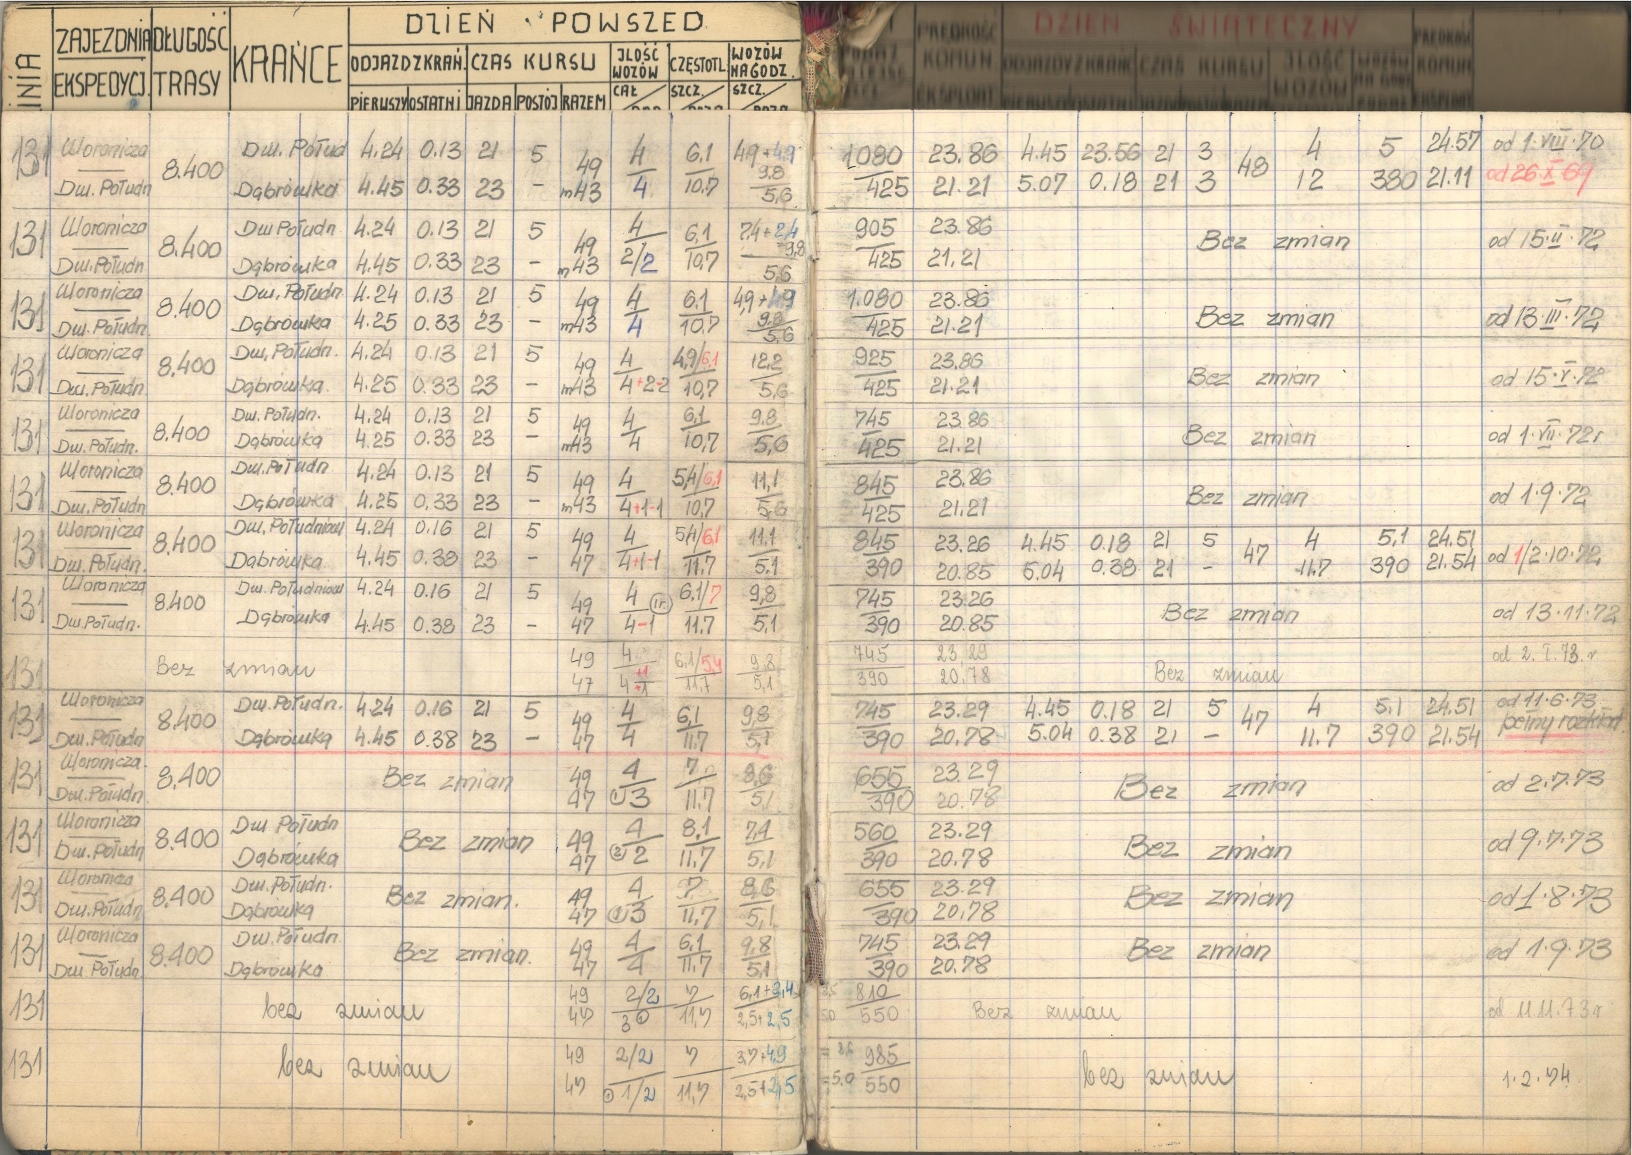 DZIEŃ POWSZED
ZAJEZDNIA DŁUGOŚĆ KRAŃCE ODJAZD Z KRAŃ. CZAS KURSU ILOŚĆ WOZÓW CZĘSTOTL. WOZÓW NA GODZ.
EKSPEDYCJ. TRASY PIERWSZY OSTATNI JAZDA POSTÓJ RAZEM CAŁ SZCZ. SZCZ.
DZIEŃ ŚWIĄTECZNY
PRĘDKOŚĆ KOMUN. ODJAZDY Z KRAŃC CZAS KURSU ILOŚĆ WOZÓW PRĘDKOŚĆ KOMUN
131 Woronicza 8.400 Dw. Połud 4.24 0.13 21 5 49 4 6,1 4,9+4,9 1.080 23.86 4.45 23.56 21 3 48 4 5 24.57 od 1.VIII.70
Dw. Połudn Dąbrówka 4.45 0.33 23 – m43 4 10,7 9.8 5,6 425 21.21 5.07 0.18 21 3 12 380 21.11 od 26.X.69
131 Woronicza 8.400 Dw Połudn 4.24 0.13 21 5 49 4 6,1 7,4+2,4 905 23.86 Bez zmian od 15.II.72
Dw. Połudn Dąbrówka 4.45 0.33 23 – m43 2/2 10,7 9,8 5,6 425 21.21
131 Woronicza 8.400 Dw. Połudn 4.24 0.13 21 5 49 4 6,1 4,9+4,9 1.080 23.86 Bez zmian od 13.III.72
Dw. Połudn. Dąbrówka 4.25 0.33 23 – m43 4 10,7 9.8 5,6 425 21.21
131 Woronicza 8.400 Dw. Połudn. 4.24 0.13 21 5 49 4 4,9/6,1 12,2 925 23.86 Bez zmian od 15.V.72
Dw. Połudn. Dąbrówka 4.25 0.33 23 – m43 4+2-2 10,7 5,6 425 21.21
131 Woronicza 8.400 Dw. Połudn. 4.24 0.13 21 5 49 4 6,1 9,8 745 23.86 Bez zmian od 1.VII.72r
Dw. Połudn. Dąbrówka 4.25 0.33 23 – m43 4 10,7 5,6 425 21.21
131 Woronicza 8.400 Dw. Połudn 4.24 0.13 21 5 49 4 5,4/6,1 11,1 845 23.86 Bez zmian od 1.9.72
Dw. Połudn Dąbrówka 4.25 0.33 23 – m43 4+1-1 10,7 5,6 425 21.21
131 Woronicza 8.400 Dw. Południowy 4.24 0.16 21 5 49 4 5,4/6,1 11,1 845 23.26 4.45 0.18 21 5 47 4 5,1 24.51 od 1/2.10.72
Dw. Połudn. Dąbrówka 4.45 0.38 23 – 47 4+1-1 11,7 5,1 390 20.85 5.04 0.38 21 – 11.7 390 21.54
131 Woronicza 8.400 Dw. Południow 4.24 0.16 21 5 49 4 6,1/7 9,8 745 23.26 Bez zmian od 13.11.72
Dw. Połudn. Dąbrówka 4.45 0.38 23 – 47 4-1 11.7 5,1 390 20.85
131 Bez zmian 49 4 6,1/5,4 9,8 745 23,29 Bez zmian od 2.I.73.r
47 4 11,7 5,1 390 20,78
131 Woronicza 8.400 Dw. Połudn. 4.24 0.16 21 5 49 4 6,1 9,8 745 23.29 4.45 0.18 21 5 47 4 5,1 24.51 od 11.6.73
Dw. Połudn Dąbrówka 4.45 0.38 23 – 47 4 11,7 5,1 390 20.78 5.04 0.38 21 – 11.7 390 21.54 pełny rozkład
131 Woronicza. 8.400 Bez zmian 49 4 7 8,6 655 23.29 Bez zmian od 2.7.73
Dw. Połudn 47 ① 3 11.7 5,1 390 20.78
131 Woronicza 8.400 Dw Połudn Bez zmian 49 4 8,1 7,4 560 23.29 Bez zmian od 9.7.73
Dw. Połudn Dąbrówka 47 ② 2 11,7 5,1 390 20.78
131 Woronicza 8.400 Dw. Połudn. Bez zmian. 49 4 7 8,6 655 23.29 Bez zmian od 1.8.73
Dw. Połudn Dąbrówka 47 ① 3 11,7 5,1 390 20,78
131 Woronicza 8.400 Dw. Połudn Bez zmian. 49 4 6,1 9,8 745 23.29 Bez zmian od 1.9.73
Dw Połudn. Dąbrówka 47 4 11.7 5,1 390 20.78
131 bez zmian 49 2/2 7 6,1+2,4 810 Bez zmian od 11.11.73r
47 3 ① 11,7 2,5+2,5 550
131 bez zmian 49 2/2 7 3,7+4,9 985 bez zmian 1.2.74
47 ① 1/2 11,7 2,5+2,5 =5,0 550